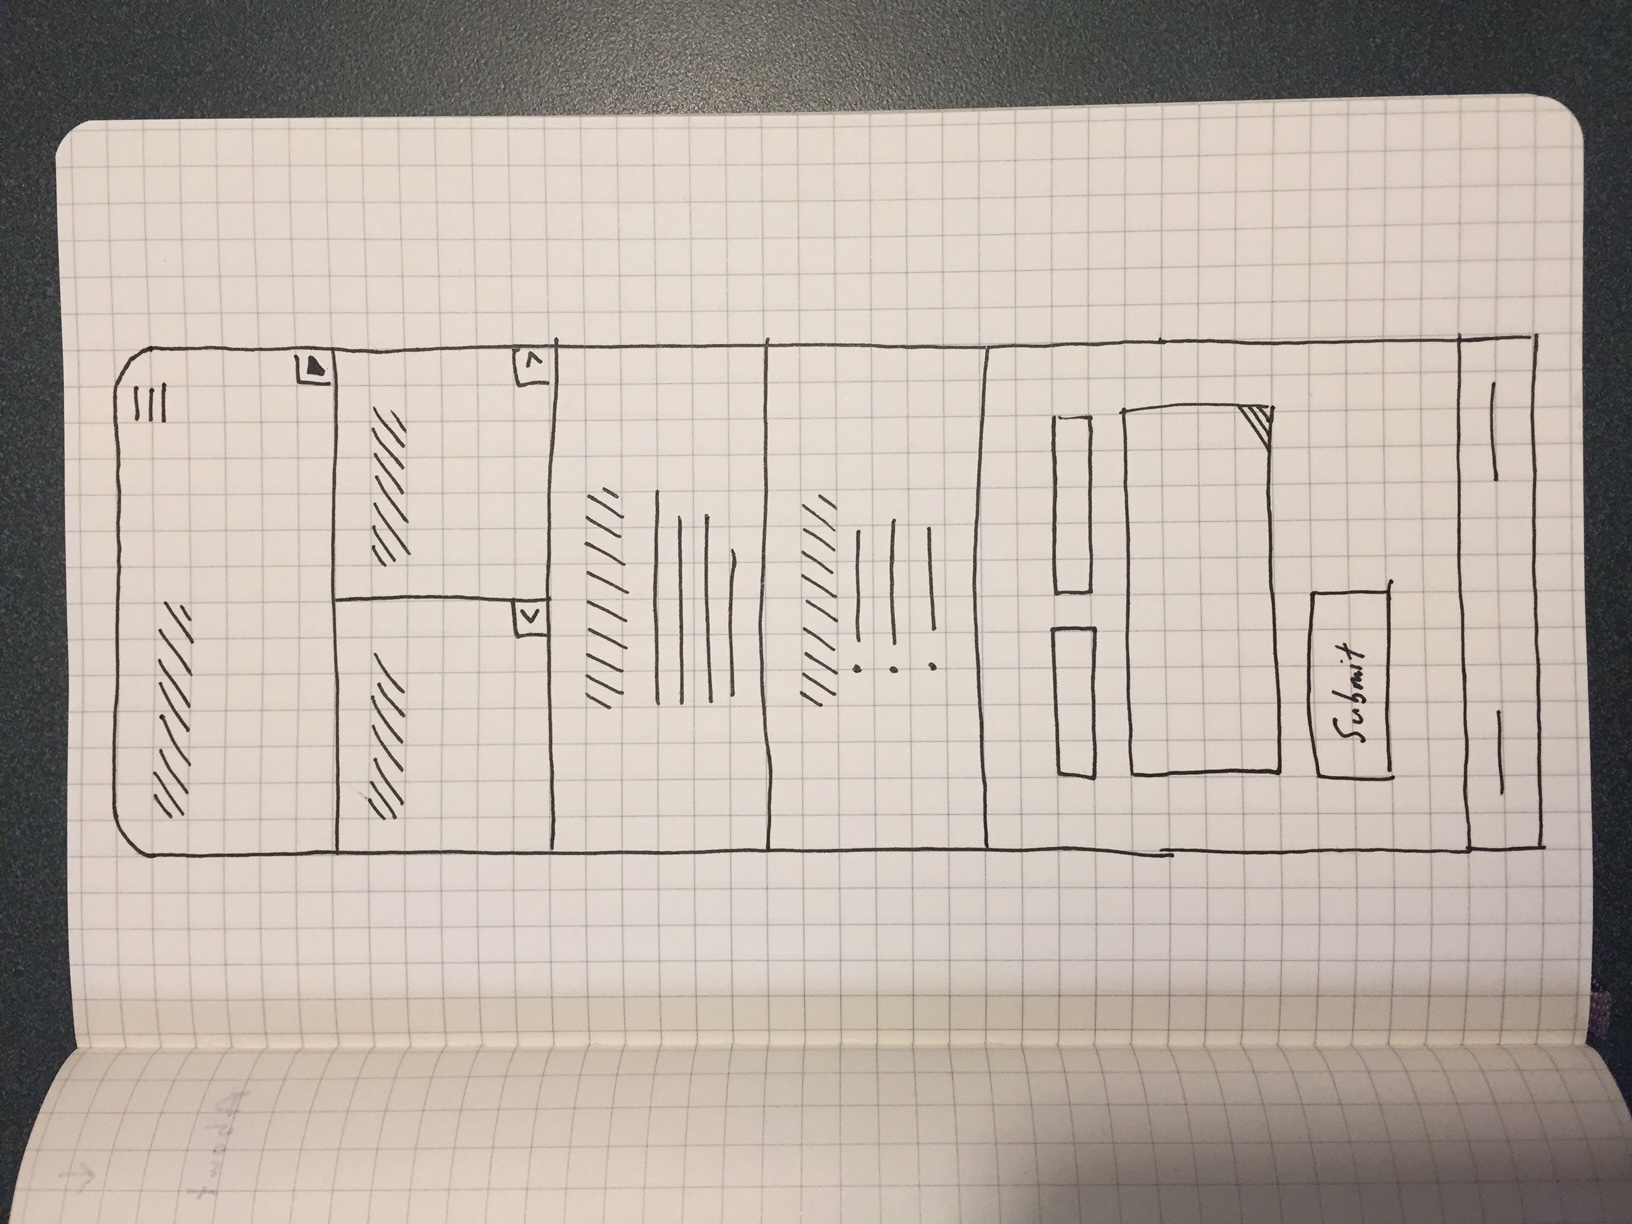 About
<
>
Submit